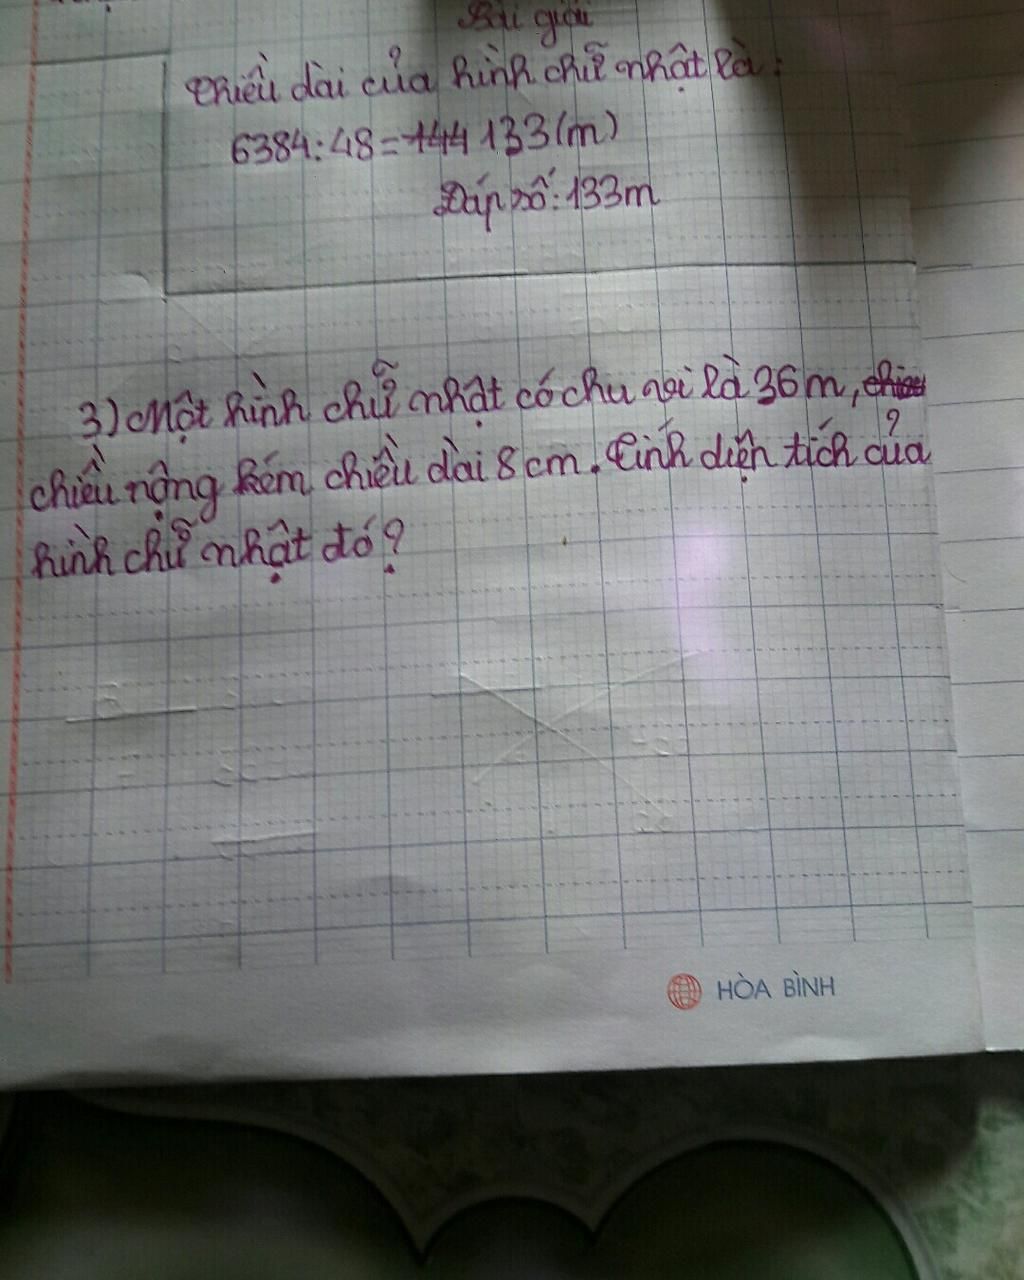 Bài giải
Chiều dài của hình chữ nhật là:
6384:48=144 133(m)
Đáp số: 133m
3) Một hình chữ nhật có chu vi là 36 m, chiều
chiều rộng kém chiều dài 8 cm. Tính diện tích của
hình chữ nhật đó?
HÒA BÌNH